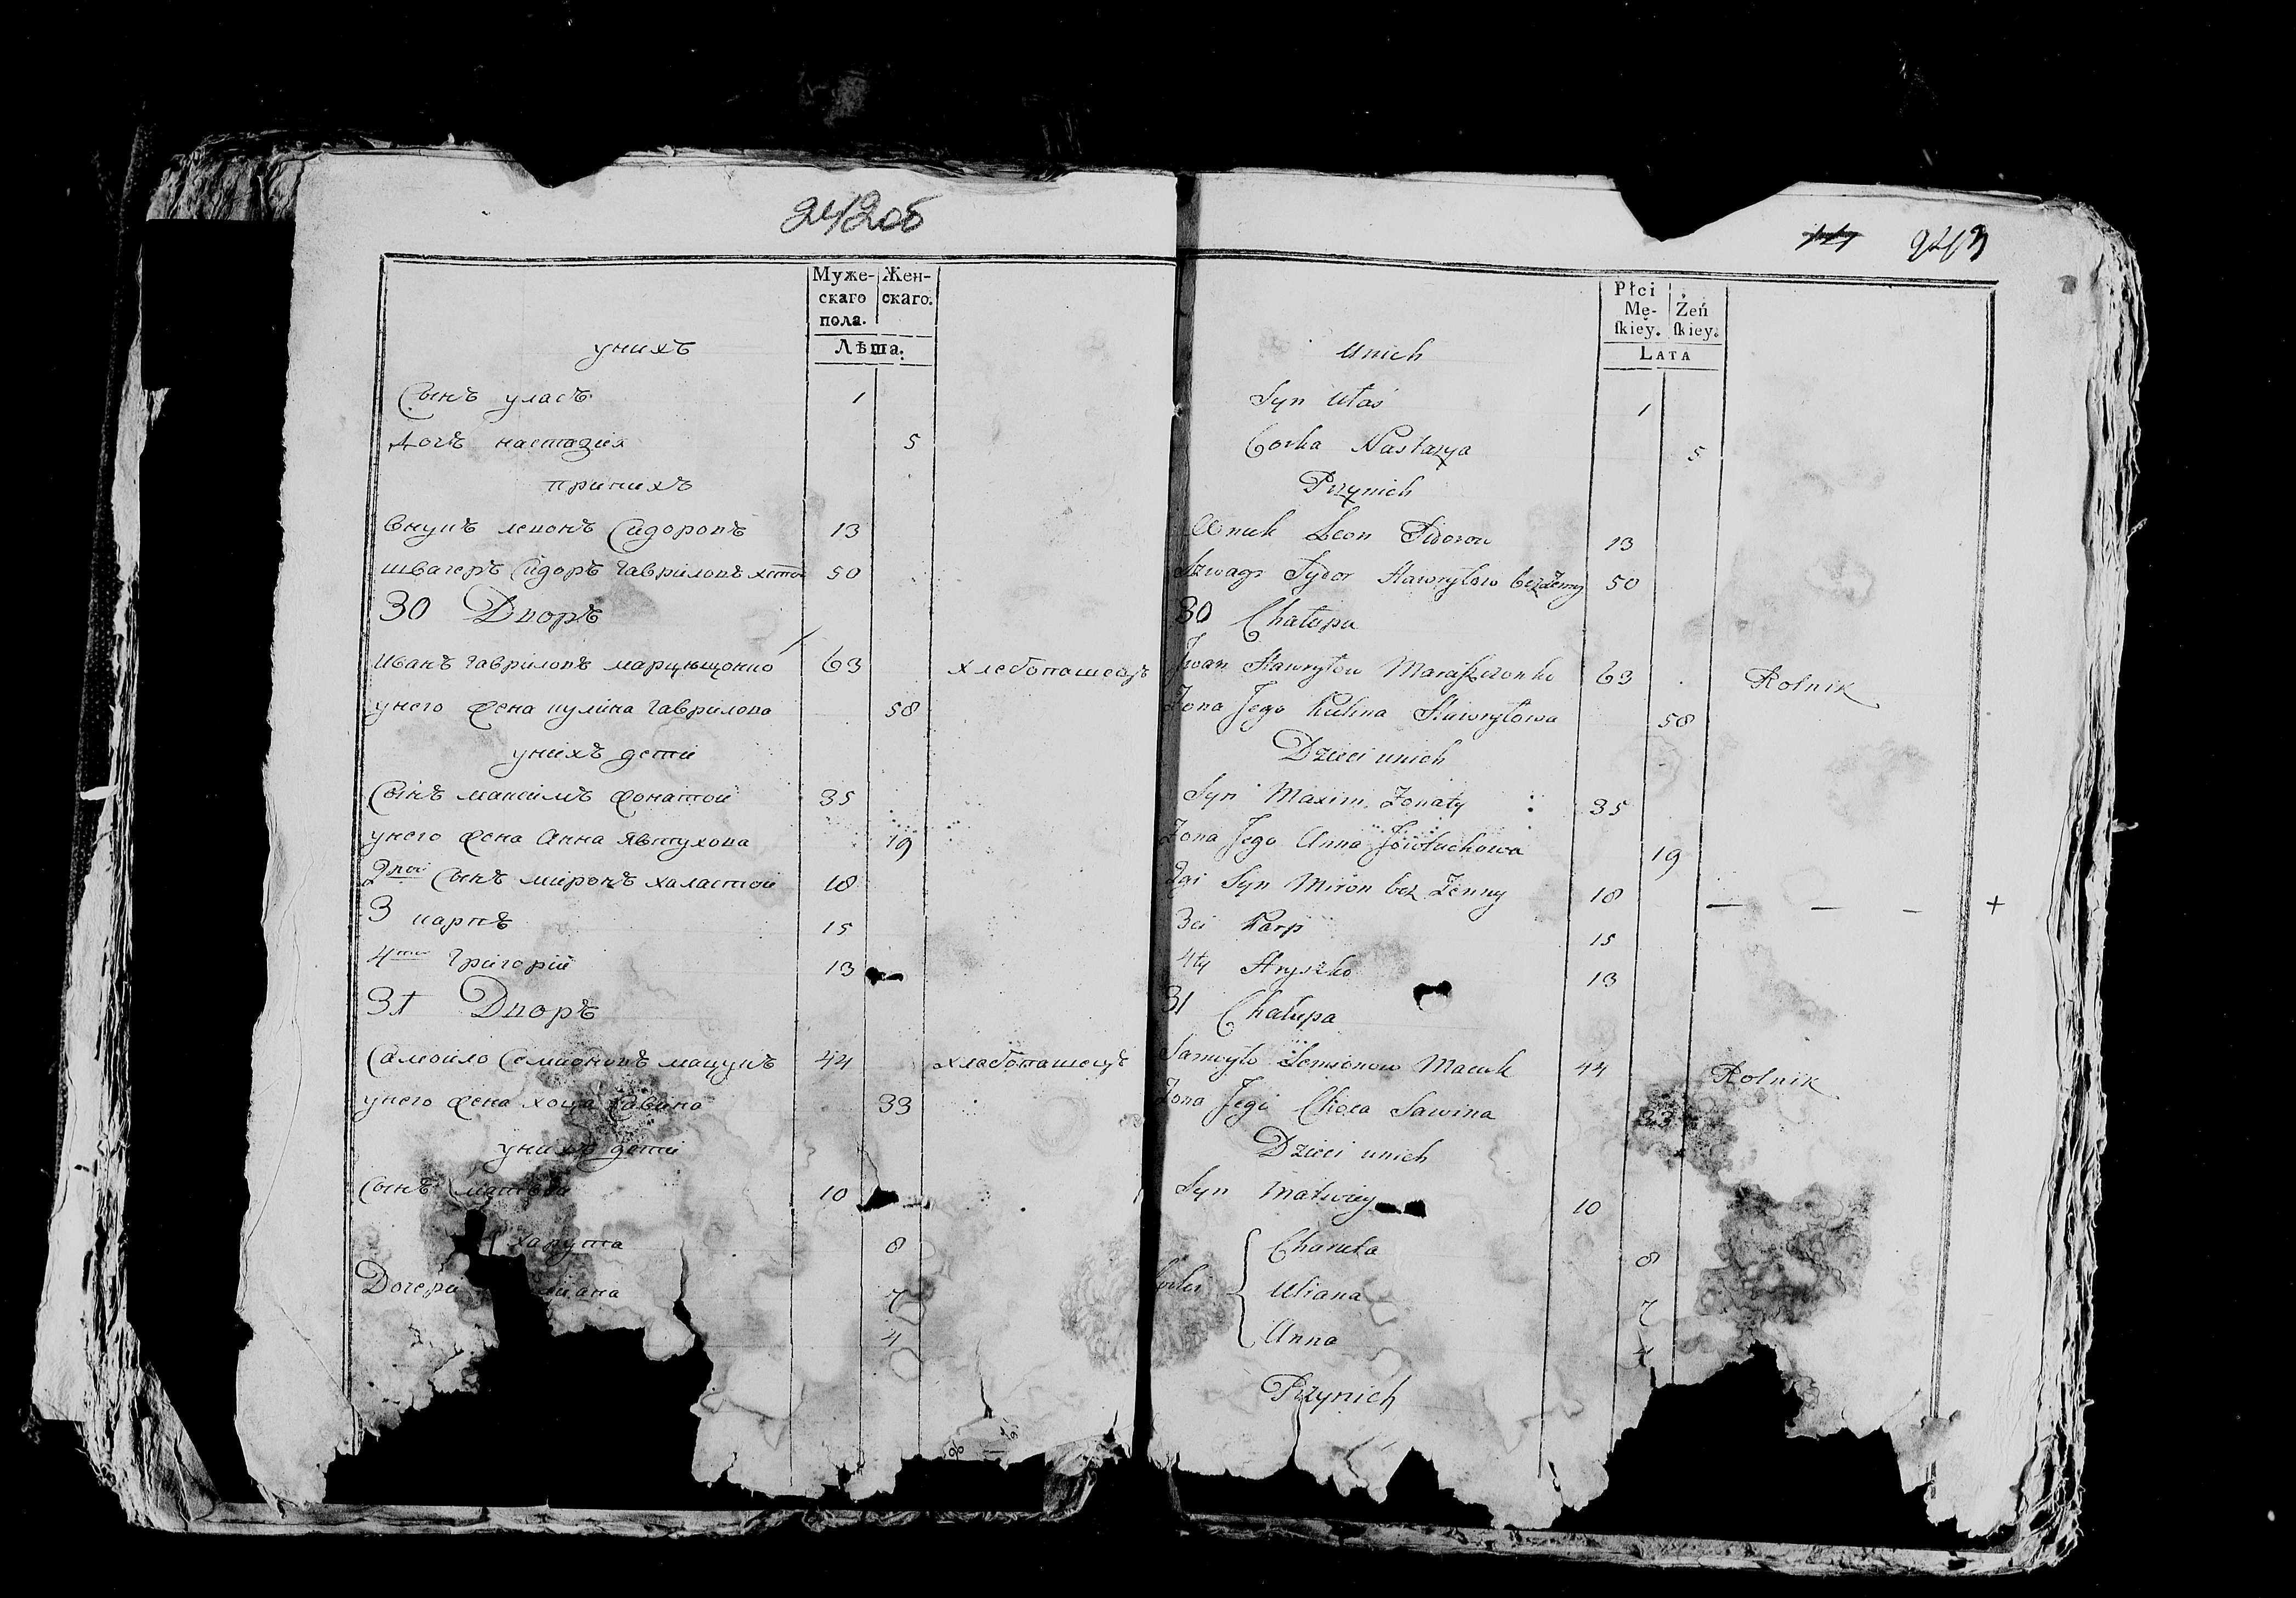 242об
Муже-
скаго
пола.
Жен-
скаго.
Лѣта.
унихъ
Сынъ уласъ 1
дочъ настазия 5
принихъ
внукъ левонъ Сидоровъ 13
швагеръ Сидоръ гавриловъ 50
30 Дворъ
иванъ гавриловъ марцѣщонко 63 хлебопашецъ
унего жена кулина гаврилова 58
унихъ дети
Сынъ максимъ жонатой 35
унего жена анна явтухова 19
2гой Сынъ миронъ халастой 18
3 карпъ 15
4той григорий 13
31 Дворъ
Самойло Семионовъ мацукъ 44 хлебопашецъ
унего жена хоца Савина 33
унихъ дети
Сынъ 10
харута 8
Дочери 7
4
243
Płci
Mę-
ſkiey.
Żeń
ſkiey.
LATA
Unich
Syn Ułaś 1
Corka Nastazya 5
Przynich
Wnuk Leon Sidorow 13
Szwagr Sydor Hawryłow bezŻenny 50
30 Chałupa
Jwan Hawryłow 63 Rolnik
Żona Jego Kulina Hawryłowa 58
Dzieci unich
Syn Maxim Żonaty : 35
Żona Jego Anna Jowtuchowa 19
2gi Syn Miron bez Żenny 18 — — — +
3ci Karp 15
4ty Hryszko 13
31 Chałupa
Samoyło Semionow Macuk 44 Rolnik
Żona Jego Choca Sawina 33
Dzieci unich
Syn Matwiey 10
Charuta 8
Corki Uliana 7
Anna 4
Przynich